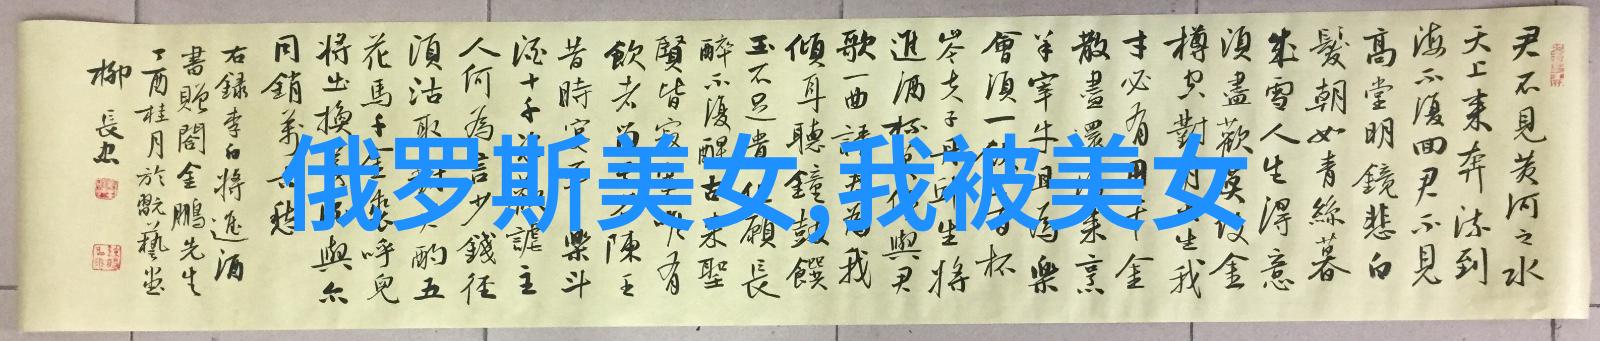 君不見黃河之水
天上來奔流到
海不復回君不見
高堂明鏡悲白
髮朝如青絲暮
成雪人生得意
須盡歡莫使金
樽空對月天生我
才必有用千金
散盡還復來烹
羊宰牛且為樂
會須一百杯
岑夫子丹丘生將
進酒杯與君
歌一曲請為我
傾耳聽鐘鼓饌
玉不足貴但願長
醉不復醒古來聖
賢皆寂唯有
飲者陳王
昔時宴平樂斗
酒十千謔主
人何為言少錢徑
須沽取對酌五
花馬千金裘呼兒
將出換美酒與尓
同銷萬古愁
右録李白將進酒
書贈閻金鵬先生
丁酉桂月於翫藝堂
柳長忠
俄罗斯美女,我被美女